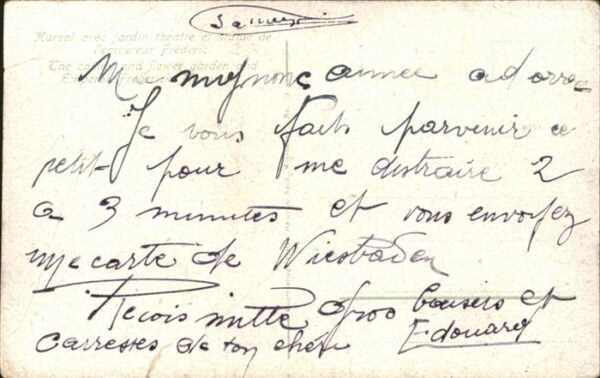 Samedi
Kursal avec jardin théâtre et statue de
l'empereur Fréderic.
The and flower garden and
Emperor
M mignonne aimée adorée
Je vous fait parvenir ce
petit pour me distraire 2
a 3 minutes et vous envoyez
une carte de Wiesbaden
Recois mille gros baisers et
Carresses de ton chéri Edouard